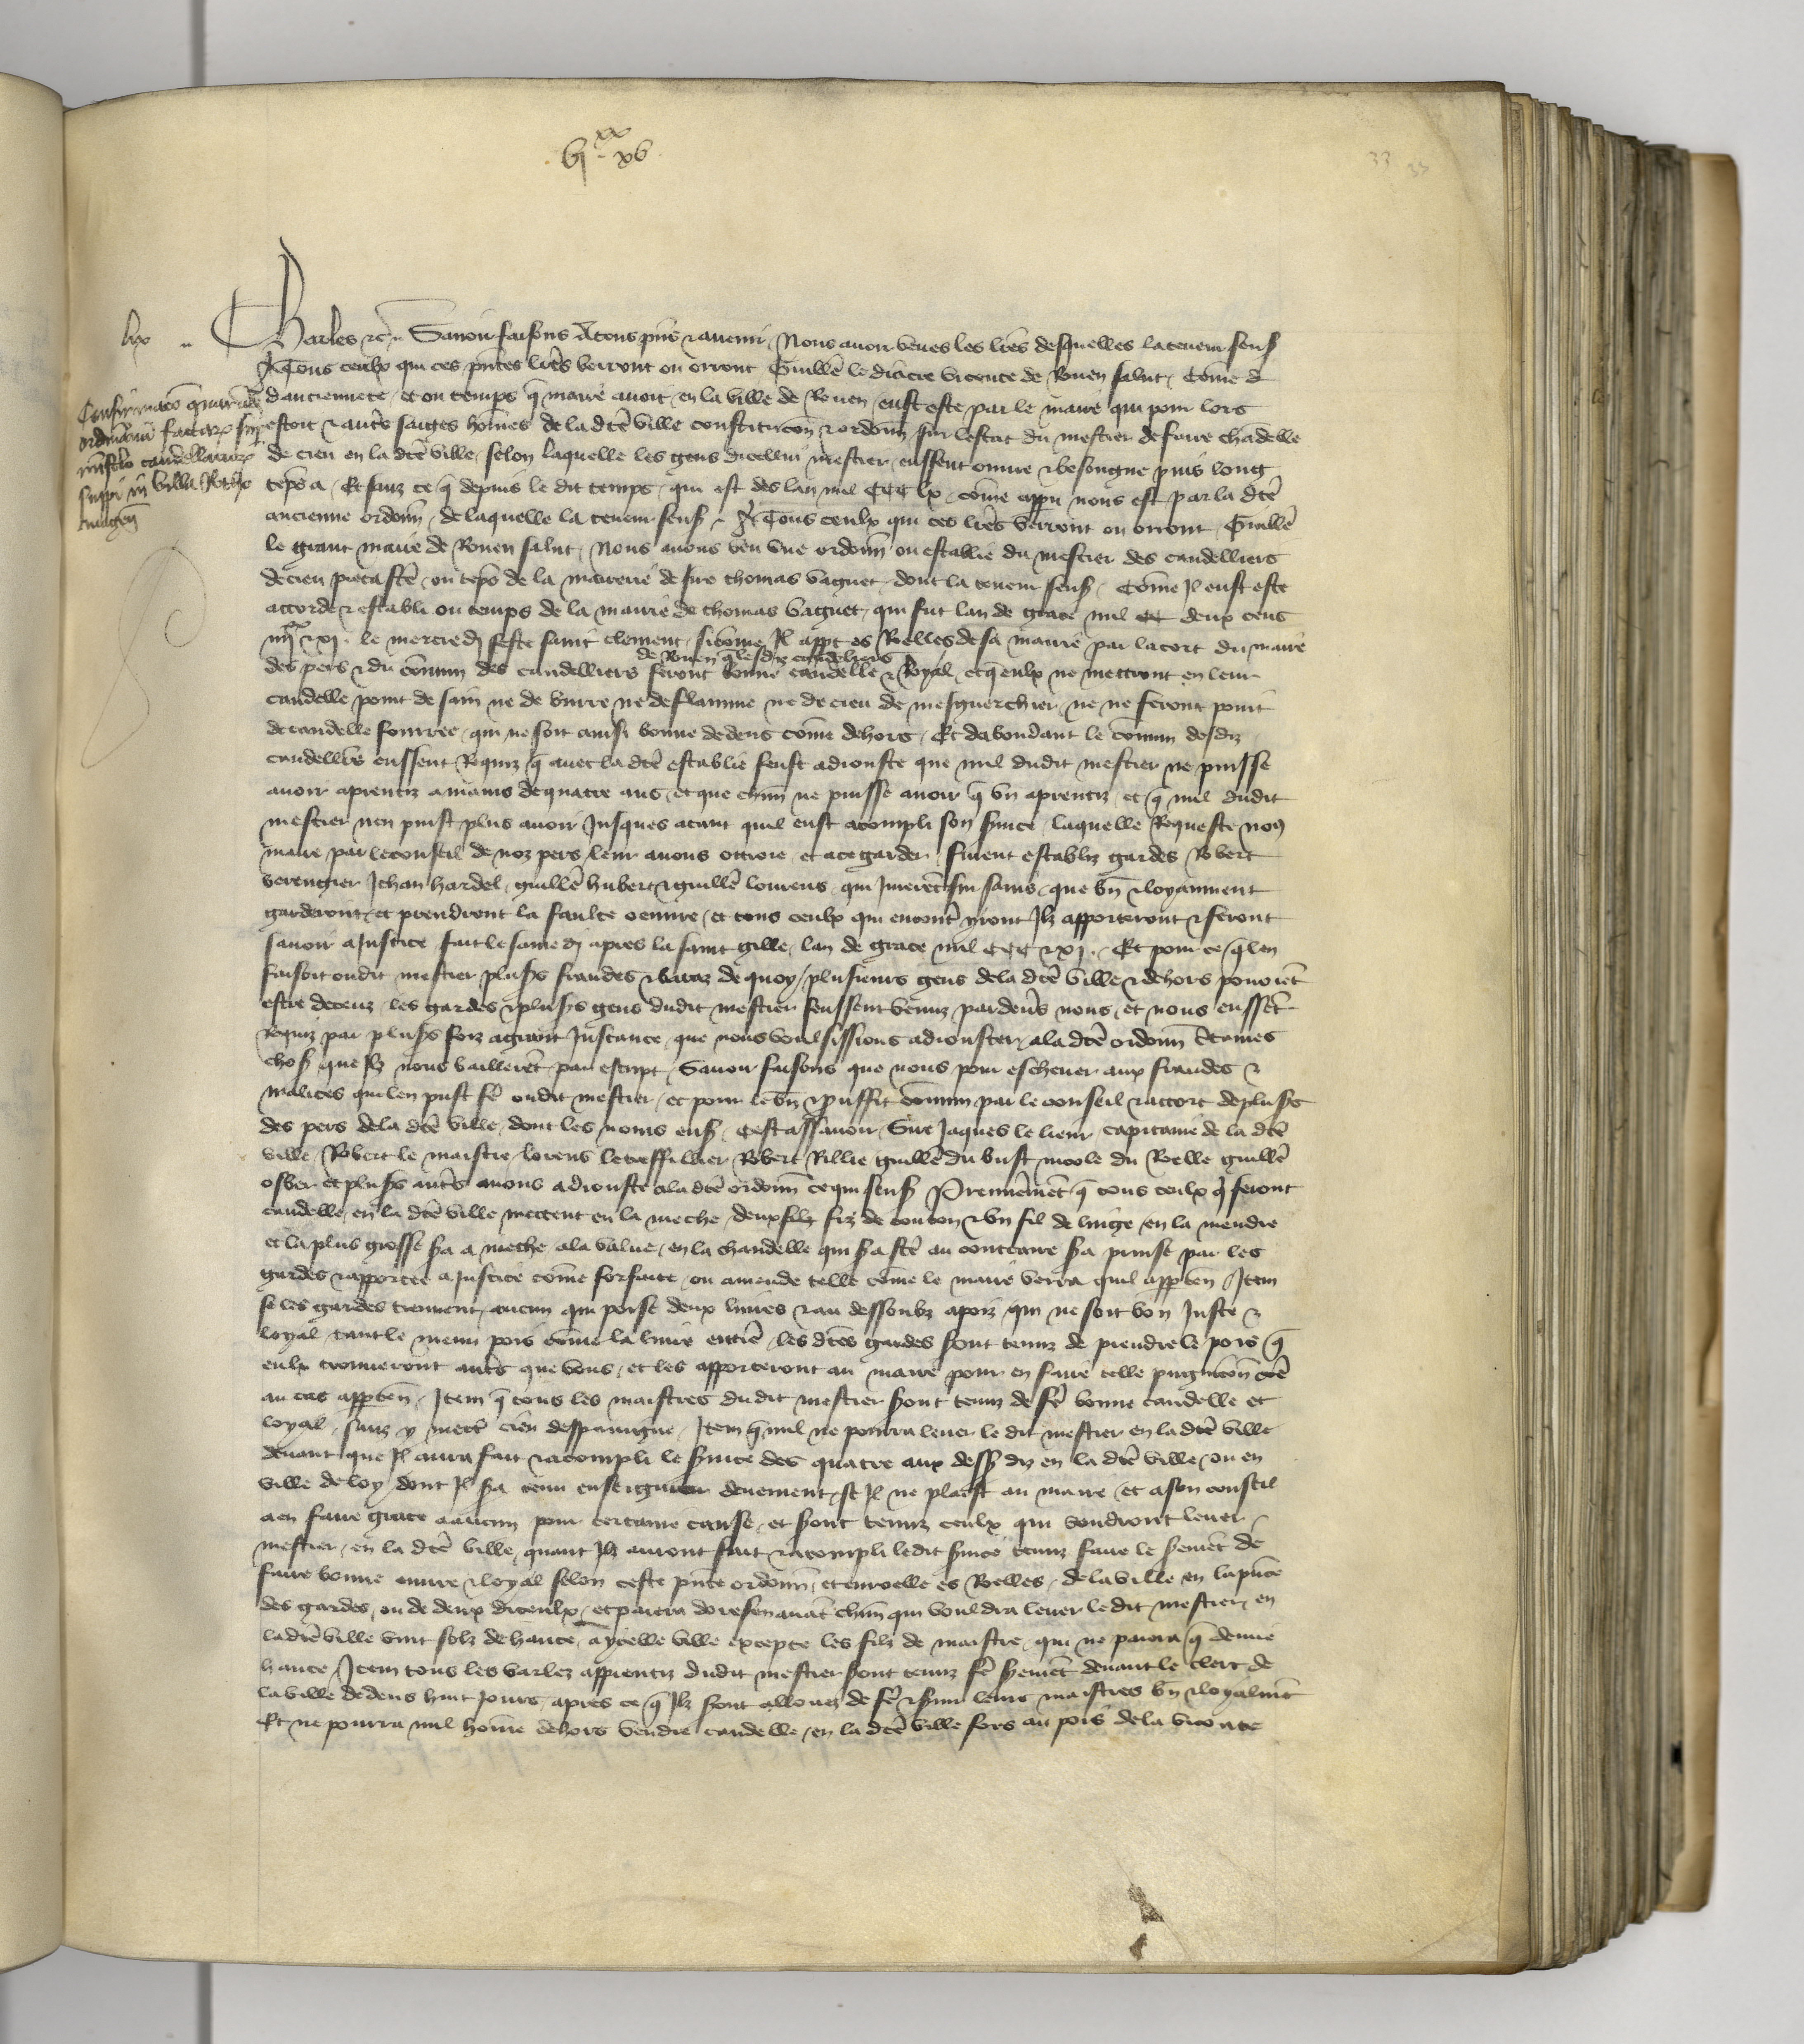 vj xx xv
33 33
lix
Charles etc. Savoir faisons A tous pñs et avenir, Nous avoir veues les lres desquelles la teneur sens
A Tous ceulx qui ces pñtes lres verront ou orront Guille le diacre viconte de Rouen salut, Come d
dancienneté et ou temps q maire avoit en la ville de Rouen, eust esté par le maire qui pour lors
estoit & autres saiges homes de la dcte ville constitucon & ordonn sur lestat du mestier de faire chādelle
de cieu en la dcte ville, selon laquelle les gens dicellui mestier eussent ouvré & besongné puis long
teps a, Et sanz ce q depuis le dit temps, qui est des lan mil CCC lx, come appu nous est par la dcte
ancienne ordonn, de laquelle la teneur sens, A Tous ceulx qui ces lres verront ou orront, Guille
le grant maire de Rouen salut, Nous avons veu une ordonn ou establie du mestier des candelliers
de cieu pieca fcte, ou teps de la mairerie de sire thomas vaguet, dont la teneur sens, Come Il eust esté
accordé & establi ou temps de la mairie de thomas vaguet, qui fut lan de grace mil deux cens
iiij xx xj. le mercredj feste saint clement, sicome Il appt es Roelles de sa mairie par lacort du maire
des pers & du comun des candelliers de Rouen q lesdiz candeliers feront bonne candelle & loyal, et q eulx ne mettront en leur
candelle point de sain ne de burre ne de flamme ne de cieu de mesguerchier, ne ne feront point
de candelle fourree, qui ne soit ausi bonne dedens come dehors, Et dabondant le comun desdiz
candelliers eussent Requiz q avec la dcte establie feust adiousté que nul dudit mestier ne puisse
avoir aprentiz a mains de quatre ans, et que chūn ne puisse avoir q un aprentiz, et q nul dudit
mestier nen puist plus avoir Jusques atant quil eust acompli son svice, laquelle Requeste nous
maire par le conseil de noz pers leur avons ottroié, et ace garder furent establiz gardes Robert
berengier Jehan hardel, guille hubert & guille lorens, qui Jurerēt sur sains, que bn & loyaument
garderont, et prendront la faulce oeuvre, et tous ceulx qui encontr yront Ilz apporteront & feront
savoir a Justice fait le samedj apres la saint gille, lan de grace mil CCC & xj. Et pour ce q len
faisoit oudit mestier plusrs fraudes & baraz de quoy plusieurs gens de la dcte ville & dehors povoiēt
estre deceuz, les gardes & plusrs gens dudit mestier feussent venuz pardevs nous, et nous eussēt
Requiz par plusrs foiz a grant Instance, que nous voulsissions adiouster a la dcte ordonn Ctaines
choses que Ilz nous baillerēt par escript, Savoir faisons que nous pour eschever aux fraudes &
malices quilen puist fe oudit mestier, et pour le bn & prouffit comun par le conseil & accort de plusrs
des pers de la dcte ville, dont les noms ens, Cestassavoir, Sire Jaques le lieur capitaine de la dcte
ville, Robert le maistre, lorens letreffillier Robert Rillie guille du bust nicole du Roelle guille
osber et plusrs autrs avons adiousté a la dcte ordonn ce qui sens Premieremēt q tous ceulx q feront
candelle, en la dcte ville mettent en la meche, deux filz fiz de couton & un fil de linge en la mendre
et la plus grosse sa a meche a la value, en la chandelle qui sa fcte au contraire sa prinse par les
gardes & apportee a Justice come forfaite, ou amende telle come le maire verra quil apptien, Item
se les gardes treuvent, aucun qui poise deux livres & au dessoubz a poiz qui ne soit bon Juste &
loyal, tant le menu pois come la livre entie, les dctes gardes sont tenuz de prendre le pois q
eulx trouveront autrs que bons, et les apporteront au maire pour en faire telle pugnicōn coe
au cas appten, Item q tous les maistres dudit mestier sont tenuz de fe bonne candelle et
loyal, sanz y mettr cieu despaingne, Item q nul ne pourra lever le dit mestier en la dcte ville
devant que Il aura fait & acompli le svice des quatre anz dess diz en la dcte ville, ou en
ville de loy dont Il sa tenu enseigner deuement, se Il ne plaist au maire, et a son conseil
a en faire grace a aucun pour certaine cause, et sont tenuz ceulx qui voudront lever
mestier, en la dcte ville, quant Ilz auront fait & acompli ledit svice tenuz faire le sermēt de
faire bonne euvre & loyal selon ceste pñte ordonn, et enroellé es Roelles, de la ville en la pñce
des gardes, ou de deux diceulx, et paiera doresenavāt chūn qui vouldra lever le dit mestier en
la dcte ville vint solz de hance, a ycelle ville excepté les filz de maistre, qui ne paiera q demie
hance, Item tous les varlez apprentiz dudit mestier sont tenuz fe sermēt devant le clerc de
la ville dedens huit jours, apres ce q Ilz sont allouez de fe & svir leurs maistres bn & loyalmēt
Et ne pourra nul home dehors vendre candelle, en la dcte ville fors au pois de la viconte
Confirmacō quarūdā
ordinaōnū factarū sup
misterio candellarioꝝ
seppi in villa Rothō